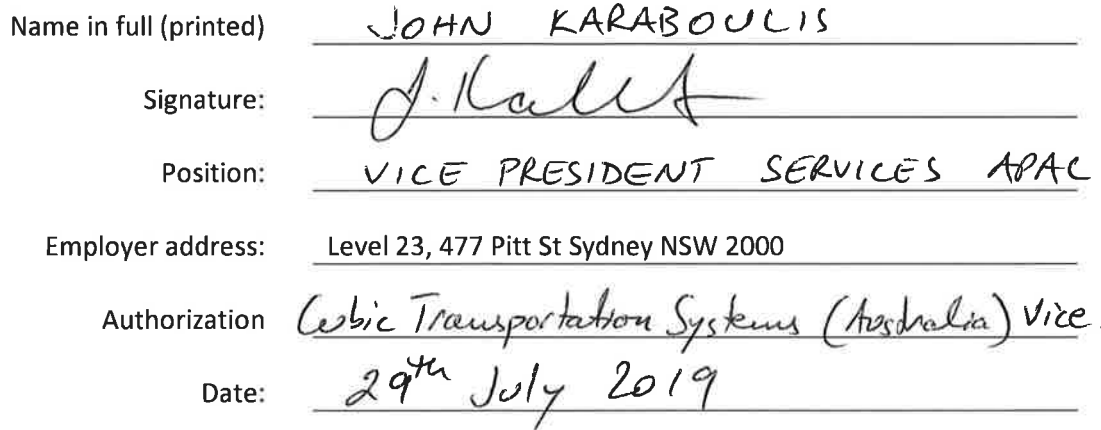 Name in full (printed) JOHN KARABOULIS
Signature: J. Kal
Position: VICE PRESIDENT SERVICES APAC
Employer address: Level 23, 477 Pitt St Sydney NSW 2000
Authorization Cubic Transportation Systems (Australia) Vice
Date: 29th July 2019